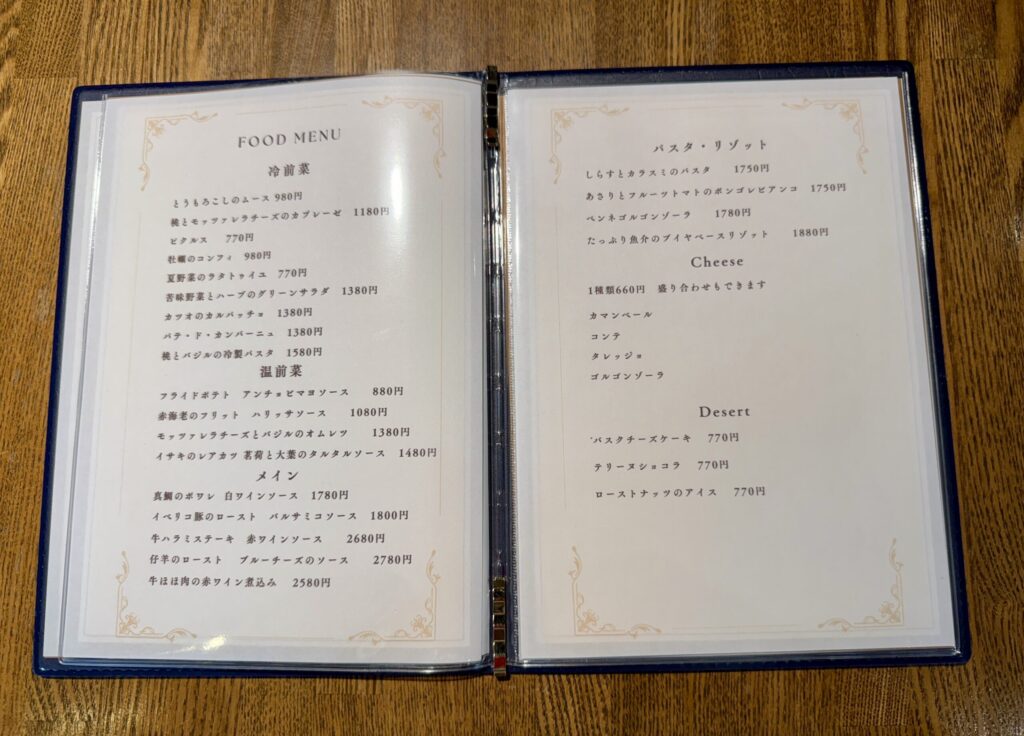 FOOD MENU
冷前菜
とうもろこしのムース 980円
桃とモッツァレラチーズのカプレーゼ 1180円
ピクルス 770円
牡蠣のコンフィ 980円
夏野菜のラタトゥイユ 770円
苦味野菜とハーブのグリーンサラダ 1380円
カツオのカルパッチョ 1380円
パテ・ド・カンパーニュ 1380円
桃とバジルの冷製パスタ 1580円
温前菜
フライドポテト アンチョビマヨソース 880円
赤海老のフリット ハリッサソース 1080円
モッツァレラチーズとバジルのオムレツ 1380円
イサキのレアカツ 茗荷と大葉のタルタルソース 1480円
メイン
真鯛のポワレ 白ワインソース 1780円
イベリコ豚のロースト バルサミコソース 1800円
牛ハラミステーキ 赤ワインソース 2680円
仔羊のロースト ブルーチーズのソース 2780円
牛ほほ肉の赤ワイン煮込み 2580円
パスタ・リゾット
しらすとカラスミのパスタ 1750円
あさりとフルーツトマトのボンゴレビアンコ 1750円
ペンネゴルゴンゾーラ 1780円
たっぷり魚介のブイヤベースリゾット 1880円
Cheese
1種類660円 盛り合わせもできます
カマンベール
コンテ
タレッジョ
ゴルゴンゾーラ
Desert
バスクチーズケーキ 770円
テリーヌショコラ 770円
ローストナッツのアイス 770円